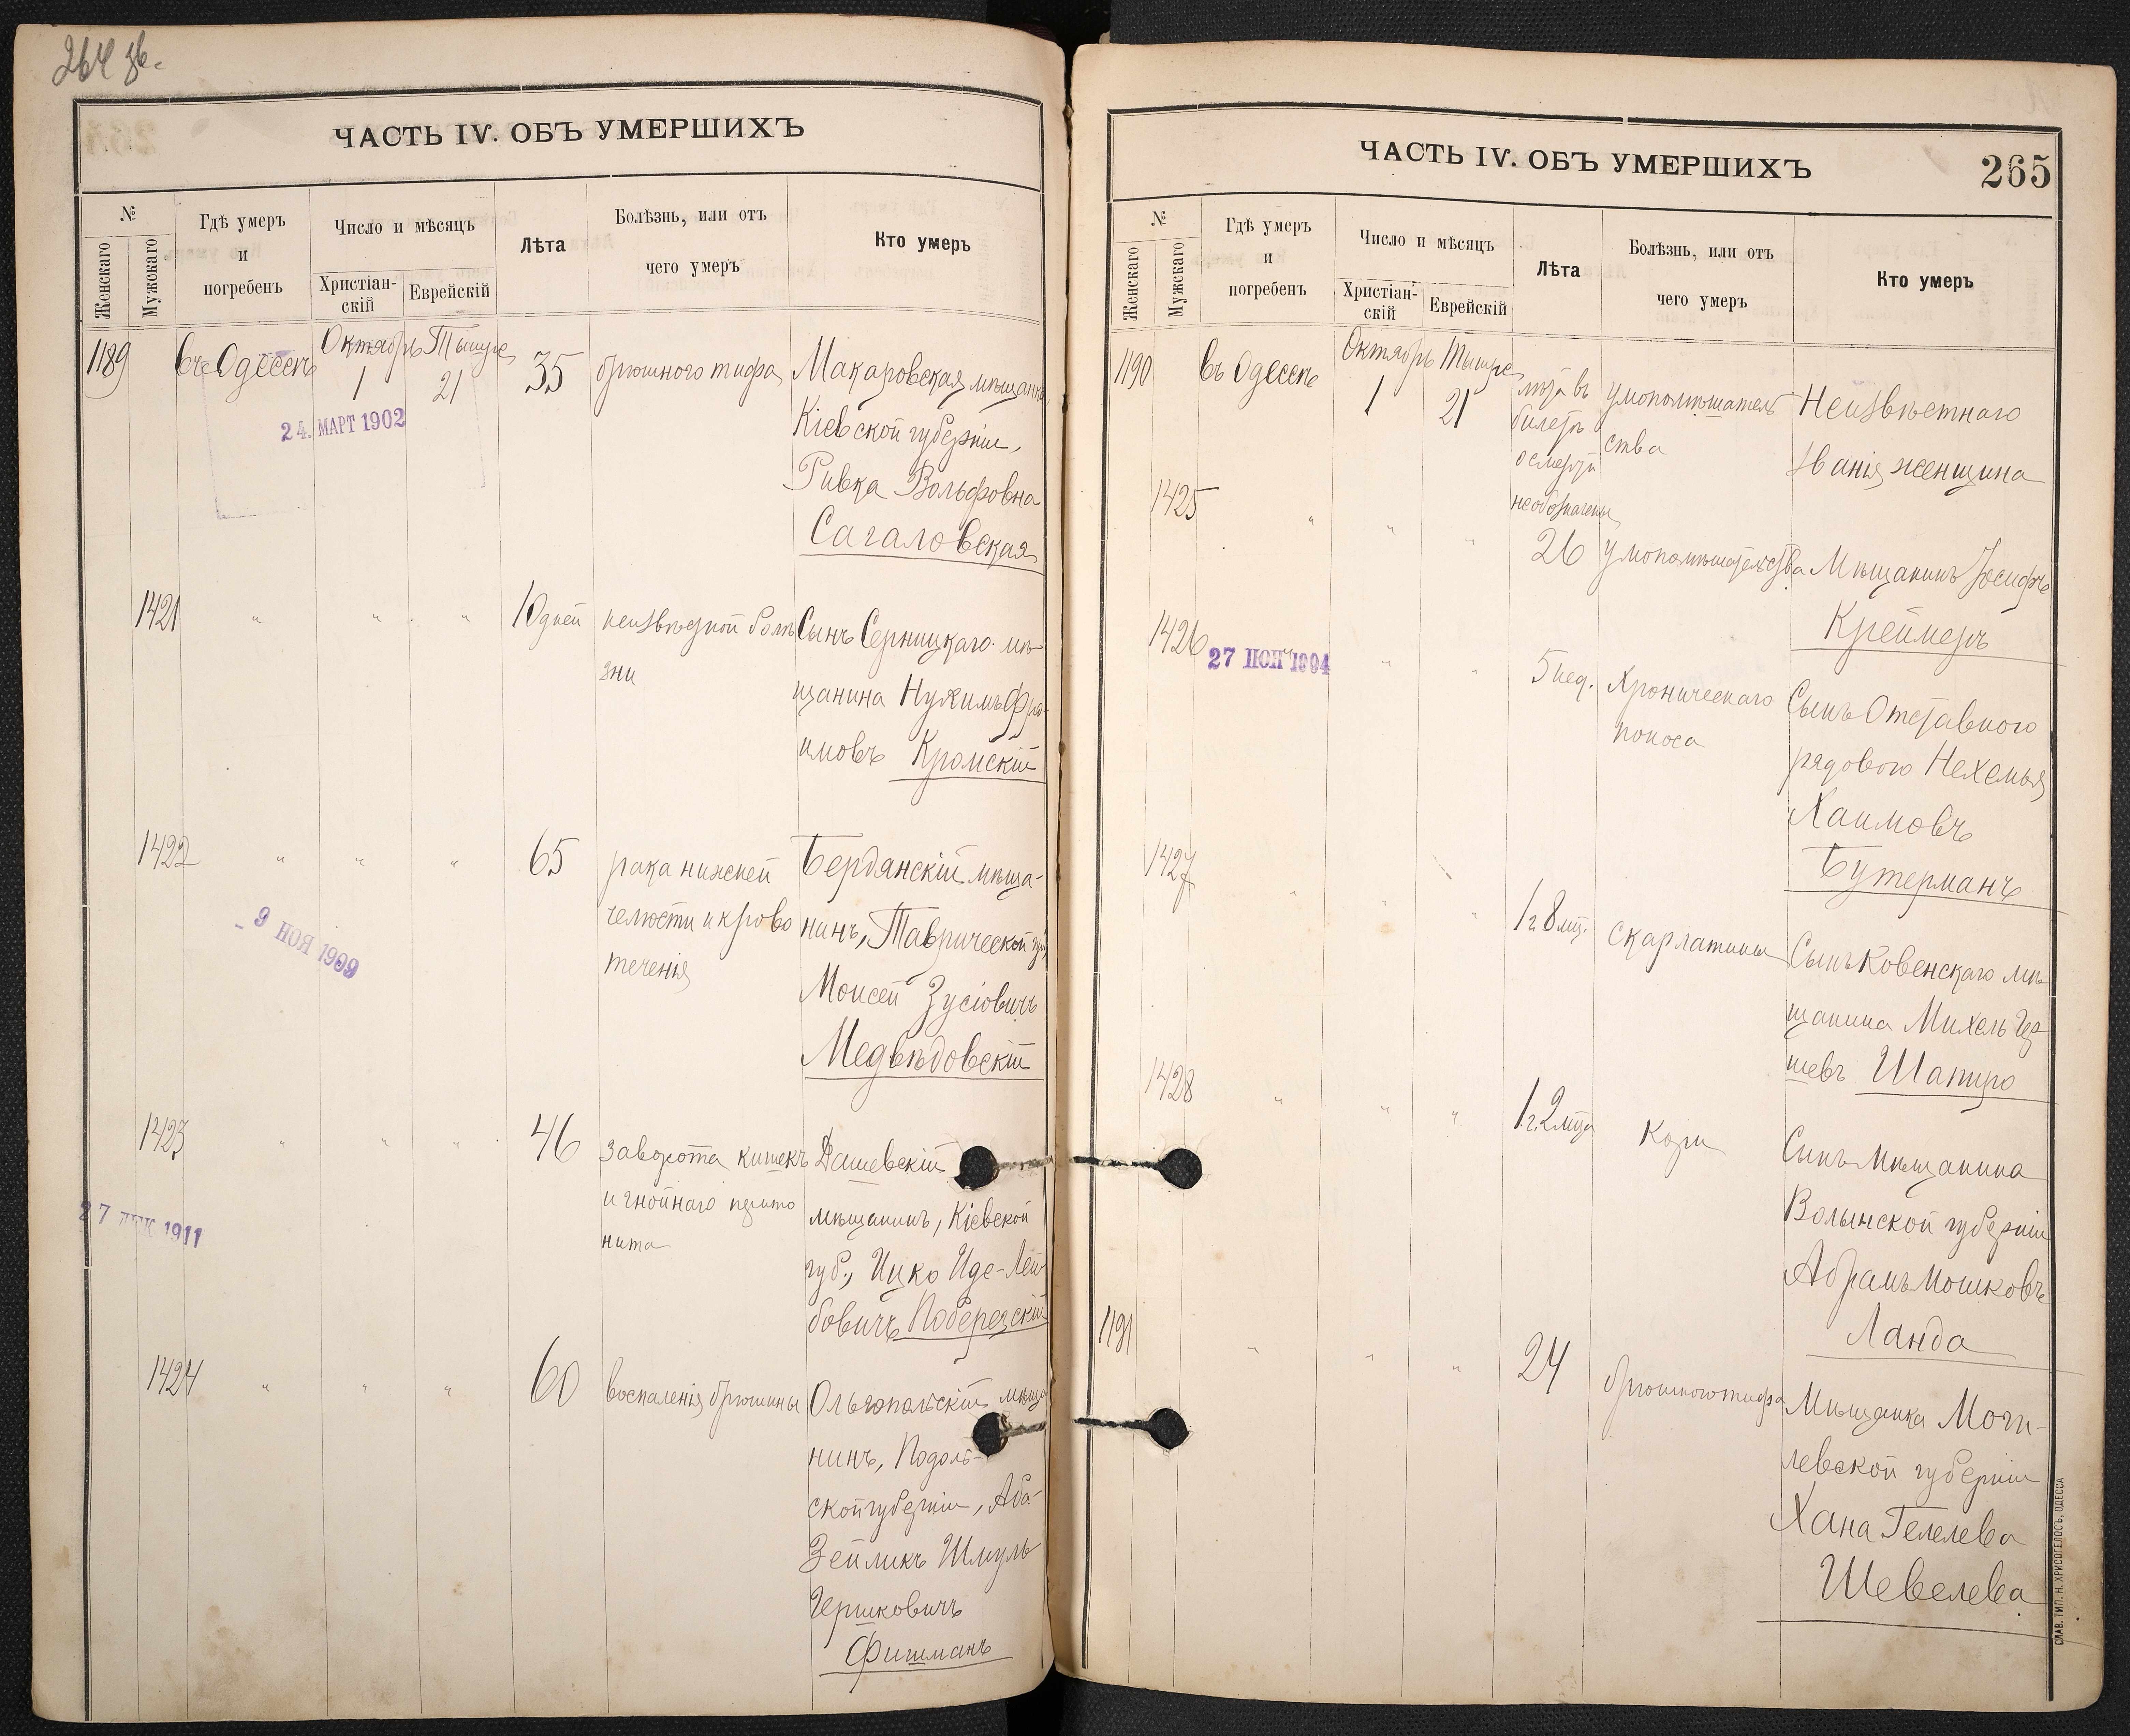 264 зв.
ЧАСТЬ IV. ОБЪ УМЕРШИХЪ
№
Женскаго
Мужскаго
Гдѣ умеръ
и
погребенъ
Число и мѣсяцъ
Христіан-
скій
Еврейскій
Лѣта
Болѣзнь, или отъ
чего умеръ
Кто умеръ
1189
въ Одессѣ
Октябрь
1
Тышре
21
35
брюшного тифа
Макаровская мѣщанка,
Кіевской губерніи,
Ривка Вольфовна
Сагаловская
24. МАРТ 1902
1421
" " "
10 дней
неизвѣстной болѣ
зни
Сынъ Серницкаго мѣ
щанина Нухимъ Фро-
имовъ Кромскій
1422
" " "
65
рака нижней
челюсти и крово
теченія
Бердянскій мѣща-
нинъ, Таврической губ.,
Моисей Зусіовичъ
Медвѣдовскій
- 9 НОЯ 1909
1423
" " "
46
заворота кишекъ
и гнойнаго перито
нита
Дашевскій
мѣщанинъ, Кіевской
губ., Ицко Иде-Лей-
бовичъ Поберезскій
27 ДЕК 1911
1424
" " "
60
воспаленія брюшины
Ольгопольскій мѣща
нинъ, Подоль-
ской губерніи, Аба-
Зейликъ Шмуль
Гершковичъ
Фишманъ
ЧАСТЬ IV. ОБЪ УМЕРШИХЪ
265
№
Женскаго
Мужскаго
Гдѣ умеръ
и
погребенъ
Число и мѣсяцъ
Христіан-
скій
Еврейскій
Лѣта
Болѣзнь, или отъ
чего умеръ
Кто умеръ
1190
въ Одессѣ
Октябрь
1
Тышре
21
лѣта въ
билетѣ
о смерти
необозначены
умопомѣшатель
ства
Неизвѣстнаго
званія женщина
1425
" " "
26
умопомѣшательства
Мѣщанинъ Іосифъ
Креймеръ
1426
27 ИЮН 1904
" "
5 нед.
Хроническаго
поноса
Сынъ Отставного
рядового Нехемья
Хаимовъ
Бутерманъ
1427
" " "
1 г. 8 мц.
скарлатины
Сынъ Ковенскаго мѣ
щанина Михель Гер
шевъ Шапиро
1428
" " "
1 г. 2 мца
Кори
Сынъ мѣщанина
Волынской губерніи
Абрамъ Мошковъ
Ланда
1191
" " "
24
брюшного тифа
Мѣщанка Моги-
левской губерніи
Хана Гелелева
Шевелева
СЛАВ. ТИП. Н. ХРИСОГЕЛОСЪ, ОДЕССА